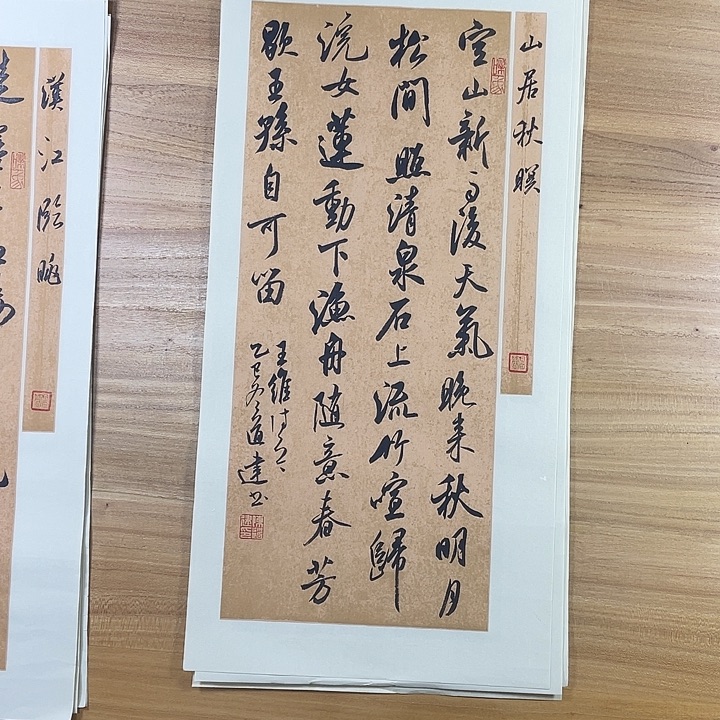 山居秋暝
空山新雨後天氣晚来秋明月
松間照清泉石上流竹喧歸
浣女蓮動下漁舟随意春芳
歇王孫自可留
王維诗
乙巳冬道達书
漢江臨眺